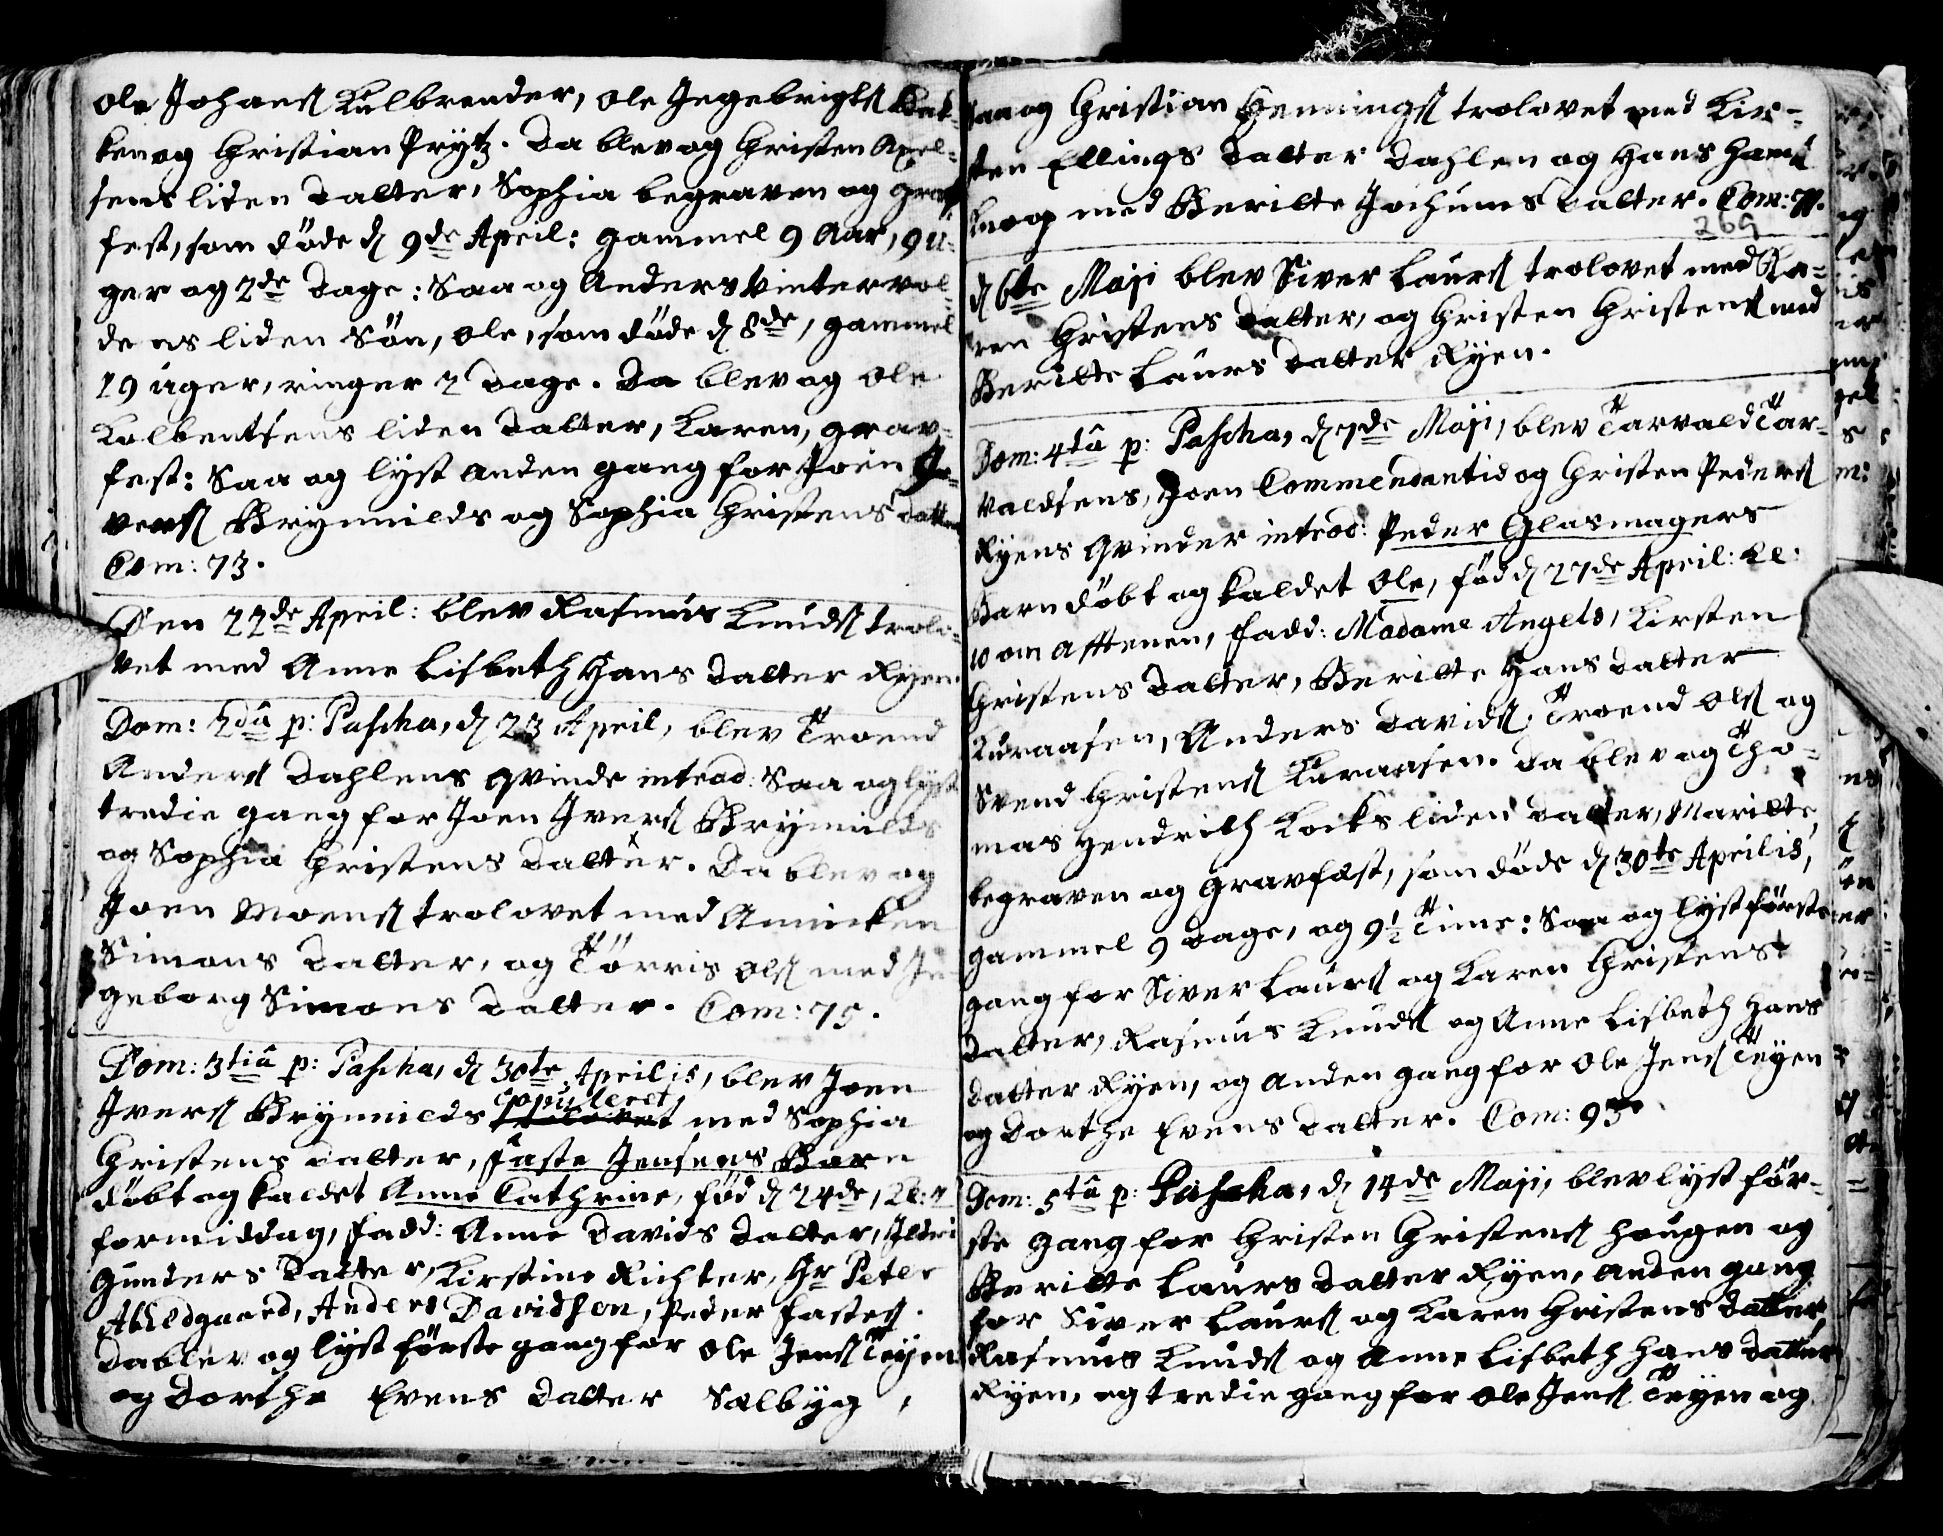 Ole Johans Kulbrender, Ole Ingebrigts Bak-
ken og Christian Prytz. Da blev og Christen Axel-
sens liden Datter, Sophia begraven og grav-
fest, som døde d 9de April: gammel 9 Aar, 9 U-
ger og 2de Dage: Saa og Anders Vintervol-
dens liden Søn, Ole, som døde d 8de, gammel
19 uger, ringer 2 Dage. Da blev og Ole
Kolbentsens liden Datter, Karen, grav-
fest: Saa og lyst anden gang for Joen I-
vers Brynnilds og Sophia Christens datter
Com: 73.
Den 22de April: blev Rasmus Knuds trolo-
vet med Anne Lisbeth Hans Datter Ryen.
Dom: 2dâ p: Pascha, d 23 April, blev Troend
Anders Dahlens qvinde introd: Saa og lyst
tredie gang for Joen Ivers Brynnilds
og Sophia Christens Datter. Da blev og
Joen Moens trolovet med Annicken
Simons Datter, og Törris Ols med In
geborg Simons Datter. Com: 75.
Dom: 3tiâ p: Pascha, d 30te Aprilis, blev Joen
Ivers Brynnilds trolovet copuleret med Sophia
Christens Datter, Faste Jensens Barn
døbt og kaldet Anne Cathrine, fød d 24de, Kl: 4
formiddag, Fadd: Anne Davids Datter, Ildri
Gunders Datter, Kirstine Richter, Hr Peter
Abildgaard, Anders Davidsen, Peder Fastes.
Da blev og lyst første gang for Ole Jens Teyen
og Dorthe Evens Datter Sælbyg,
Saa og Christian Hennings trolovet med Kir-
sten Ellings Datter Dahlen og Hans Hans
Knop med Beritte Jochums Datter. Com: 77.
269
d 6te Maji blev Siver Laurs trolovet med Ka-
ren Christens Datter, og Christen Christens med
Beritte Laurs Datter Ryen.
Dom: 4tâ p: Pascha, d 7de Maji, blev Tarvald Tar-
valdsens, Joen Commendantid og Christen Peders
Ryens Qvinder introd: Peder Glasmagers
Barn døbt og kaldet Ole, fød d 27de April: Kl:
10 om Afftenen, Fadd: Madame Angels, Kirsten
Christens Datter, Beritte Hans Datter
Kuraasen, Anders Davids, Troend Ols og
Svend Christens Kuraasen. Da blev og Tho-
mas Hendrich Kocks liden Datter, Maritte,
begraven og Gravfæst, som døde d 30te Aprilis,
gammel 9 Dage, og 9½ Time: Saa og lyst første
gang for Siver Laurs og Karen Christens
Datter, Rasmus Knuds og Anne Lisbeth Hans
Datter Ryen, og anden gang for Ole Jens Teyen
og Dorthe Evens Datter. Com: 93
Dom: 5tâ p: Pascha, d 14de Maji, blev lyst før-
ste gang for Christen Christens Haugen og
Beritte Laurs Datter Ryen, anden gang
for Siver Laurs og Karen Christens Datter,
Rasmus Knuds og Anne Lisbeth Hans Datter
Ryen, og tredie gang for Ole Jens Teyen og